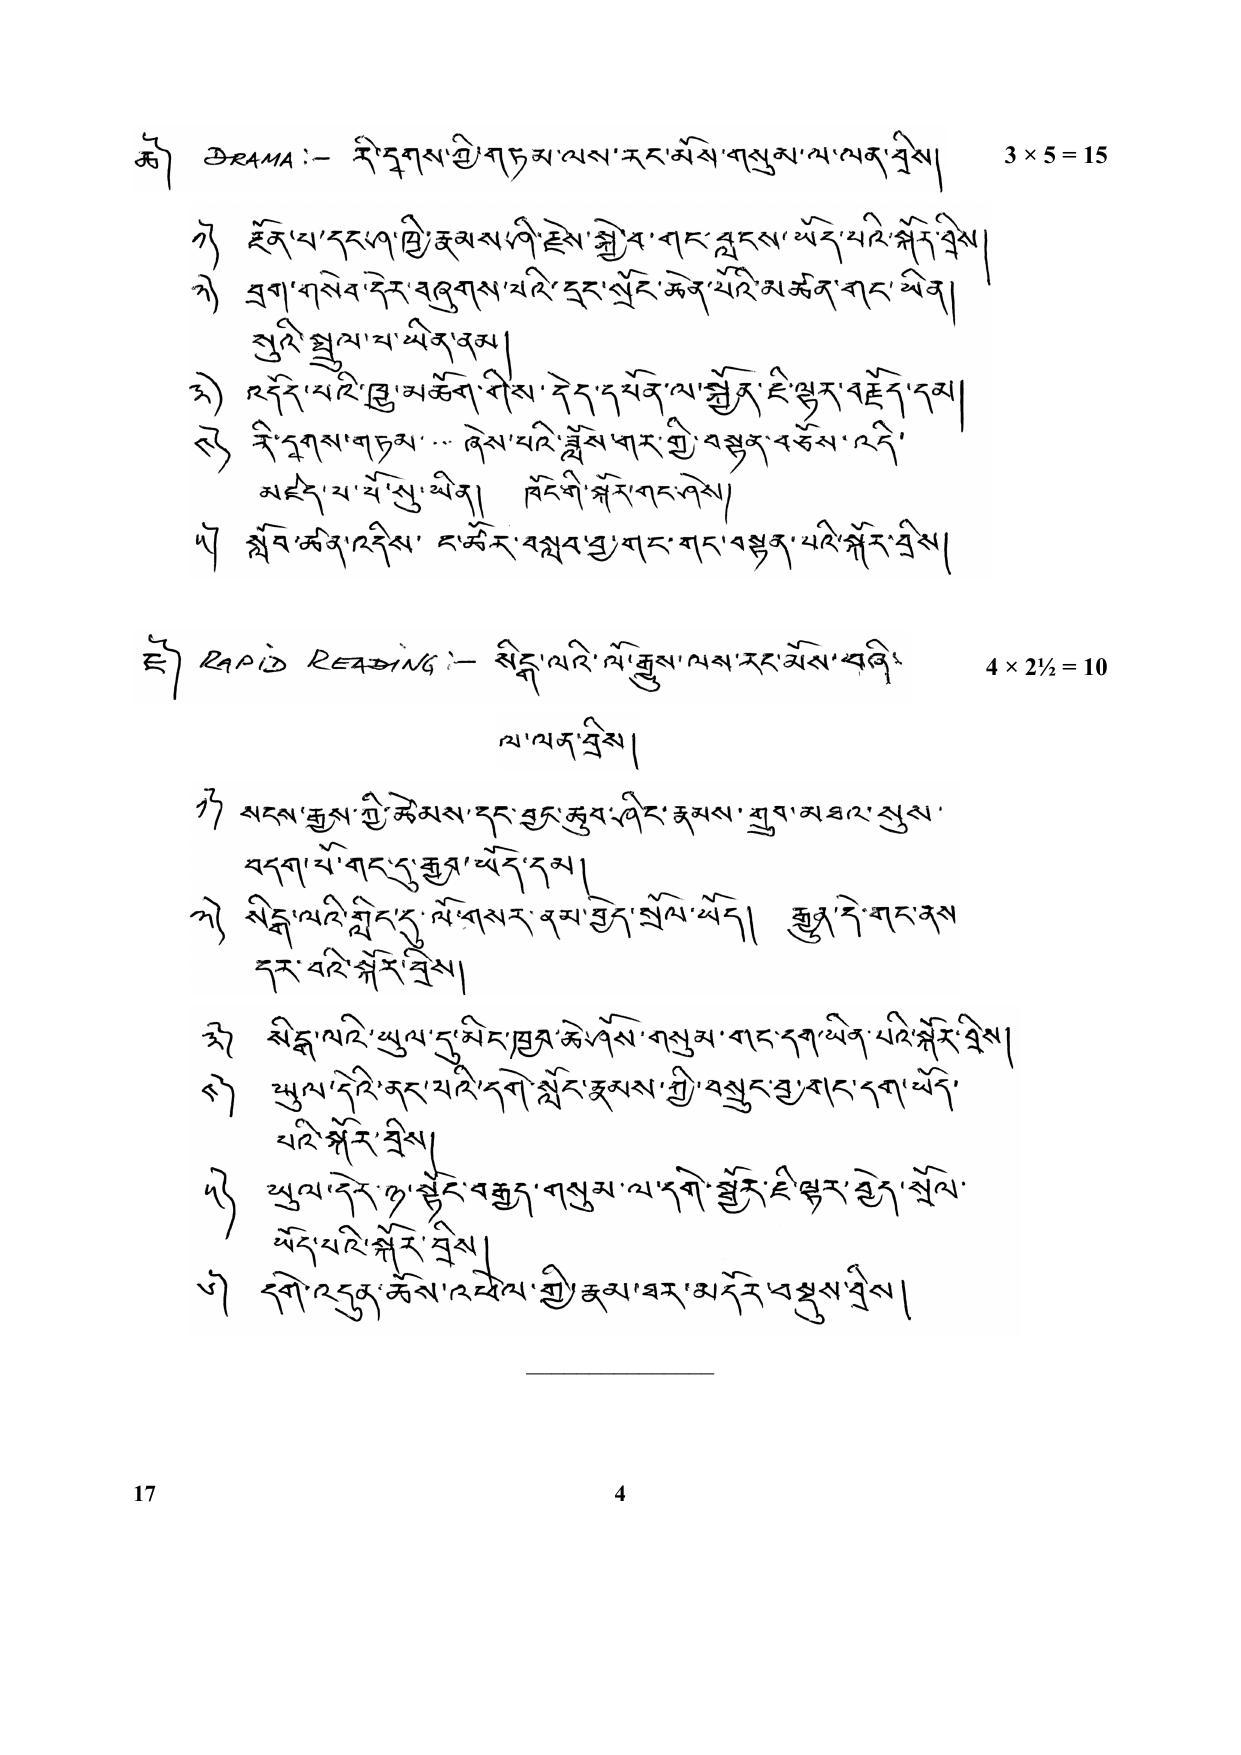 ཆ༽ DRAMA :– རི་དྭགས་ཀྱི་གཏམ་ལས་རང་མོས་གསུམ་ལ་ལན་བྲིས། 3 × 5 = 15
༡༽ རྔོན་པ་དང་ཤ་ཁྱི་རྣམས་ཤི་རྗེས་སྐྱེ་བ་གང་བླངས་ཡོད་པའི་སྐོར་བྲིས།
༢༽ བྲག་གསེབ་དེར་བཞུགས་པའི་དྲང་སྲོང་ཆེན་པོའི་མཚན་གང་ཡིན།
སུའི་སྤྲུལ་པ་ཡིན་ནམ།
༣༽ འདོད་པའི་ཁྲུ་མཆོག་གིས་དེད་དཔོན་ལ་སྐྱོན་ཇི་ལྟར་བརྗོད་དམ།
༤༽ རི་དྭགས་གཏམ་ ... ཞེས་པའི་ཟློས་གར་གྱི་བསྟན་བཅོས་འདི་
མཛད་པ་པོ་སུ་ཡིན། ཁོང་གི་སྐོར་གང་ཤེས།
༥༽ སློབ་ཚན་འདིས་ ང་ཚོར་བསླབ་བྱ་གང་གང་བསྟན་པའི་སྐོར་བྲིས།
ཇ༽ RAPID READING :– སིངྒ་ལའི་ལོ་རྒྱུས་ལས་རང་མོས་བཞི་ 4 × 2½ = 10
ལ་ལན་བྲིས།
༡༽ སངས་རྒྱས་ཀྱི་ཚེམས་དང་བྱང་ཆུབ་ཤིང་རྣམས་གྲུབ་མཐའ་སུས་
བདག་པོ་གང་དུ་རྒྱབ་ཡོད་དམ།
༢༽ སིངྒ་ལའི་གླིང་དུ་ལོ་གསར་ནམ་བྱེད་སྲོལ་ཡོད། རྒྱུན་དེ་གང་ནས
དར་བའི་སྐོར་བྲིས།
༣༽ སིངྒ་ལའི་ཡུལ་དུ་མིང་ཁྱབ་ཆེ་ཤོས་གསུམ་གང་དག་ཡིན་པའི་སྐོར་བྲིས།
༤༽ ཡུལ་དེའི་ནང་པའི་དགེ་སློང་རྣམས་ཀྱི་བསྲུང་བྱ་གང་དག་ཡོད་
པའི་སྐོར་བྲིས།
༥༽ ཡུལ་དེར་ཉ་སྟོང་བརྒྱད་གསུམ་ལ་དགེ་སྦྱོར་ཇི་ལྟར་བྱེད་སྲོལ་
ཡོད་པའི་སྐོར་བྲིས།
༦༽ དགེ་འདུན་ཆོས་འཕེལ་གྱི་རྣམ་ཐར་མདོར་བསྡུས་བྲིས།
17 4